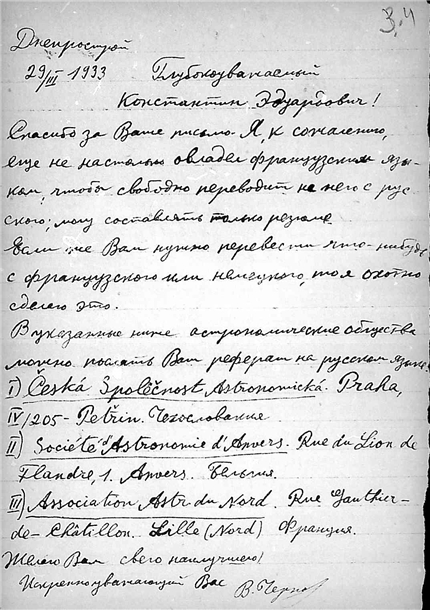 3.4
Днепрострой
29/III 1933 Глубокоуважаемый
Константин Эдуардович!
Спасибо за Ваше письмо. Я, к сожалению,
еще не настолько овладел французским язы-
ком, чтобы свободно переводить на него с рус-
ского; могу составлять только резюме.
Если же Вам нужно перевести что-нибудь
с французского или немецкого, то я охотно
сделаю это.
В указанные ниже астрономические общества
можно послать Вам реферат на русском языке.
I) Česká Společnost Astronomická. Praha,
IV/205 - Petřin. Чехословакия
II) Société d'Astronomie d'Anvers. Rue du Lion de
Flandre, 1. Anvers. Бельгия.
III) Association Astr. du Nord. Rue Gauthier-
de-Châtillon. Lille (Nord) Франция.
Желаю Вам всего наилучшего!
Искренноуважающий Вас В. Чернов